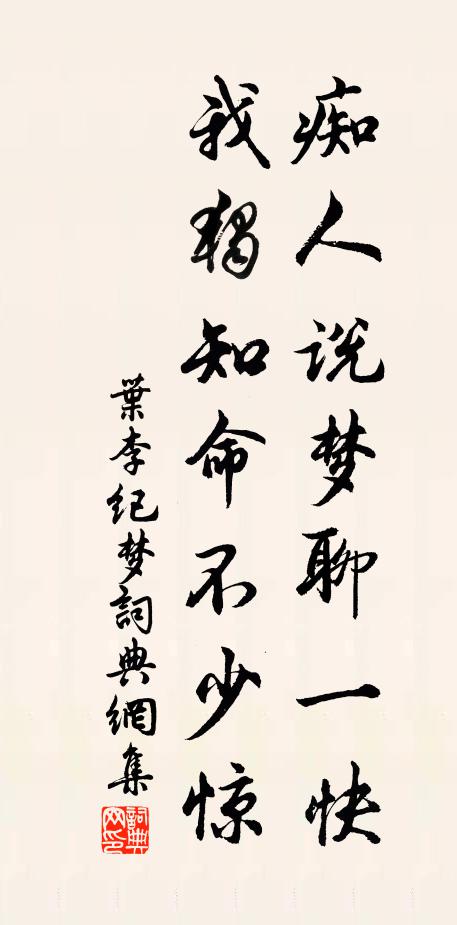 痴人说梦聊一快
我独知命不少惊
葉李纪梦詞典網集
詞典网印